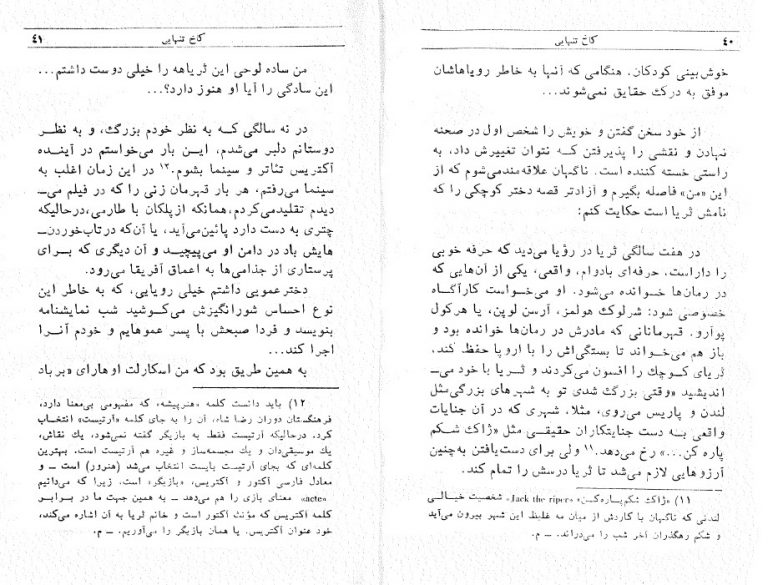 ۴۰
کاخ تنهایی
خوش‌بینی کودکان. هنگامی که آنها به خاطر رویاهاشان
موفق به درک حقایق نمی‌شوند...
از خود سخن گفتن و خویش را شخص اول در صحنه
نهادن و نقشی را پذیرفتن که نتوان تغییرش داد، به
راستی خسته کننده است. ناگهان علاقه‌مند می‌شوم که از
این «من» فاصله بگیرم و آزادتر قصه دختر کوچکی را که
نامش ثریا است حکایت کنم:
در هفت سالگی ثریا در رؤیا می‌دید که حرفه خوبی
را داراست. حرفه‌ای بادوام، واقعی، یکی از آن‌هایی که
در رمان‌ها خوانده می‌شود. او می‌خواست کارآگاه
خصوصی شود: شرلوک هولمز، آرسن لوپن، یا هرکول
پوآرو. قهرمانانی که مادرش در رمان‌ها خوانده بود و
باز هم می‌خواند تا بستگی‌اش را با اروپا حفظ کند،
ثریای کوچک را افسون می‌کردند و ثریا با خود می‌ـ
اندیشید «وقتی بزرگ شدی تو به شهرهای بزرگی‌مثل
لندن و پاریس می‌روی، مثلا، شهری که در آن جنایات
واقعی به دست جنایتکاران حقیقی مثل «ژاک شکم
پاره کن...» رخ می‌دهد.۱۱ ولی برای دست‌یافتن به‌چنین
آرزوهایی لازم می‌شد تا ثریا درسش را تمام کند.
۱۱) «ژاک شکم‌پاره‌کن» «Jack the riper» شخصیت خیالی
لندنی که ناگهان با کاردش از میان مه غلیظ این شهر بیرون می‌آید
و شکم رهگذران آخر شب را می‌دراند. ـ م.
کاخ تنهایی
۴۱
من ساده لوحی این ثریاهه را خیلی دوست داشتم...
این سادگی را آیا او هنوز دارد؟...
در نه سالگی که به نظر خودم بزرگ، و به نظر
دوستانم دلبر می‌شدم، این بار می‌خواستم در آینده
آکتریس تئاتر و سینما بشوم.۱۲ در این زمان اغلب به
سینما می‌رفتم، هر بار قهرمان زنی را که در فیلم می‌ـ
دیدم تقلیدمی‌کردم،همانکه ازپلکان با طارمی،درحالیکه
چتری به دست دارد پائین‌می‌آید، یا آن‌که درتاب‌خوردن‌ـ
هایش باد در دامن او می‌پیچید و آن دیگری که برای
پرستاری از جذامی‌ها به اعماق آفریقا می‌رود.
دخترعمویی داشتم خیلی رویایی، که به خاطر این
نوع احساس شورانگیزش می‌کوشید شب نمایشنامه
بنویسد و فردا صبحش با پسر عموهایم و خودم آنرا
اجرا کند...
به همین طریق بود که من اسکارلت اوهارای «بر باد
۱۲) باید دانست کلمه «هنرپیشه، که مفهومی بی‌معنا دارد،
فرهنگستان دوران رضا شاه، آن را به جای کلمه «آرتیست» انتخاب
کرد. درحالیکه آرتیست فقط به بازیگر گفته نمی‌شود، یک نقاش،
یک موسیقی‌دان و یک مجسمه‌ساز و غیره هم آرتیست است. بهترین
کلمه‌ای که بجای آرتیست بایست انتخاب می‌شد (هنرور) است ـ و
معادل فارسی آکتور و آکتریس، «بازیگر» است. زیرا که می‌دانیم
«acte» معنای بازی را هم می‌دهد ـ به همین جهت ما در برابر
کلمه آکتریس که مؤنث آکتور است و خانم ثریا به آن اشاره می‌کند،
خود عنوان آکتریس. یا همان بازیگر را می‌آوریم. ـ م.